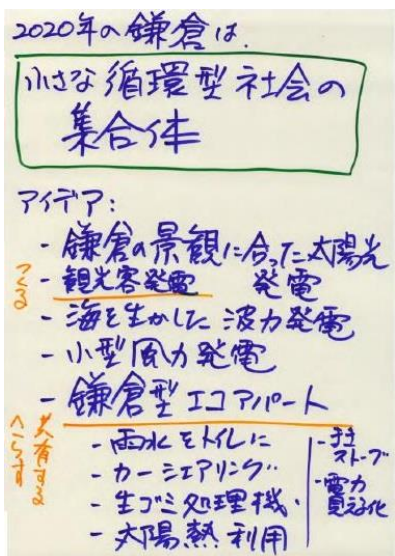 2020年の鎌倉は、
小さな循環型社会の
集合体
アイデア:
- 鎌倉の景観に合った太陽光
発電
つくる
- 観光客発電
- 海を生かした波力発電
- 小型風力発電
- 鎌倉型エコアパート
共有する
へらす
- 雨水をトイレに
- カーシェアリング
- 生ゴミ処理機
- 太陽熱利用
ストーブ
- 電力
見える化